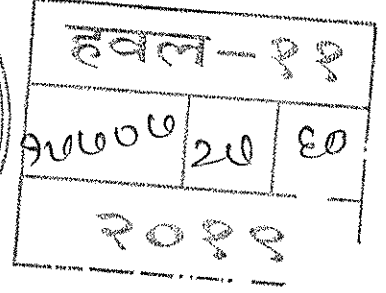 हवल-११
१७७०७ २७ ६०
२०११